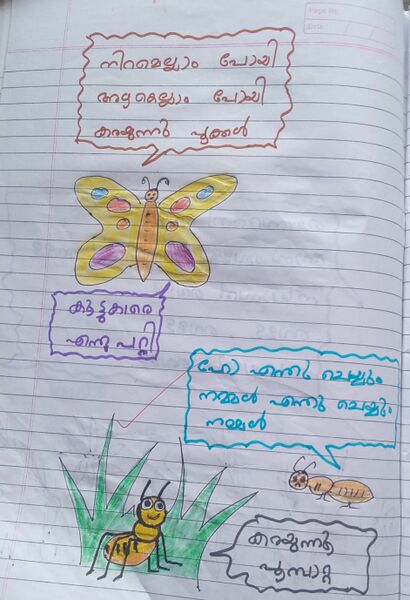 Page No.
Date
നിറമെല്ലാം പോയി
അഴകെല്ലാം പോയി
കരയുന്നു പൂക്കൾ
കൂട്ടുകാരെ
എന്തു പറ്റി
ഹോ എന്തു ചെയ്യും
നമ്മൾ എന്തു ചെയ്യും
നമ്മൾ
കരയുന്നു
പൂമ്പാറ്റ